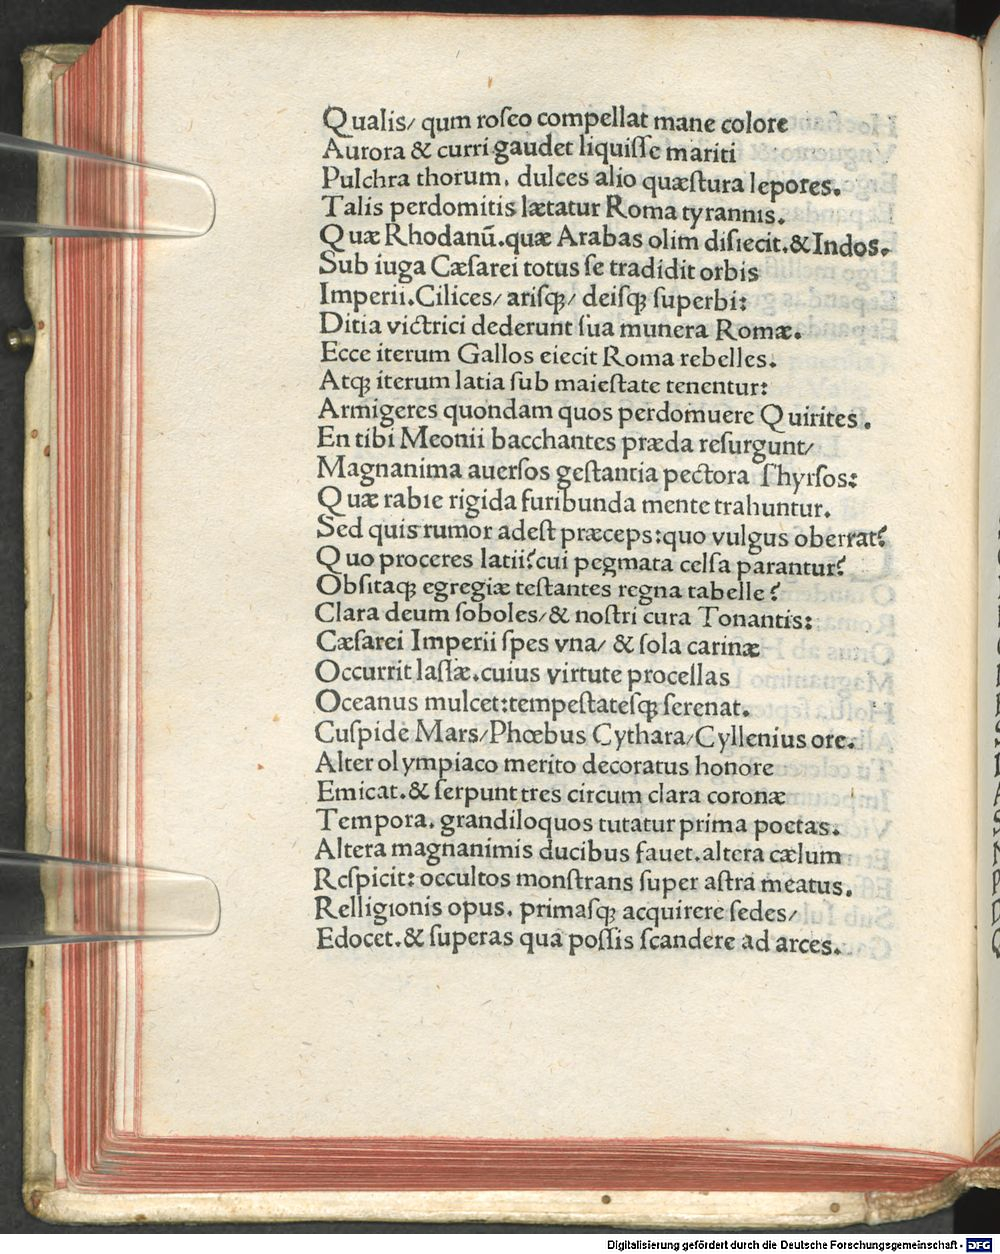 Qualis/ qum roſeo compellat mane colore
Aurora & curri gaudet liquiſſe mariti
Pulchra thorum. dulces alio quæſtura lepores.
Talis perdomitis lætatur Roma tyrannis.
Quæ Rhodanū.quæ Arabas olim diſiecit.& Indos.
Sub iuga Cæſarei totus ſe tradidit orbis
Imperii.Cilices/ ariſqꝫ/ deiſqꝫ ſuperbi:
Ditia victrici dederunt ſua munera Romæ.
Ecce iterum Gallos eiecit Roma rebelles.
Atqꝫ iterum latia ſub maieſtate tenentur:
Armigeres quondam quos perdomuere Quirites.
En tibi Meonii bacchantes præda reſurgunt/
Magnanima auerſos geſtantia pectora Thyrſos:
Quæ rabie rigida furibunda mente trahuntur.
Sed quis rumor adeſt præceps:quo vulgus oberrat?
Quo proceres latii?cui pegmata celſa parantur?
Obſitaqꝫ egregiæ teſtantes regna tabelle?
Clara deum ſoboles/& noſtri cura Tonantis:
Cæſarei Imperii ſpes vna/ & ſola carinæ
Occurrit laſſæ.cuius virtute procellas
Oceanus mulcet:tempeſtateſqꝫ ſerenat.
Cuſpide Mars/Phœbus Cythara/Cyllenius ore.
Alter olympiaco merito decoratus honore
Emicat.& ſerpunt tres circum clara coronæ
Tempora. grandiloquos tutatur prima poetas.
Altera magnanimis ducibus fauet.altera cælum
Reſpicit: occultos monſtrans ſuper aſtra meatus.
Relligionis opus. primaſqꝫ acquirere ſedes/
Edocet.& ſuperas qua poſſis ſcandere ad arces.
Digitalisierung gefördert durch die Deutsche Forschungsgemeinschaft - DFG